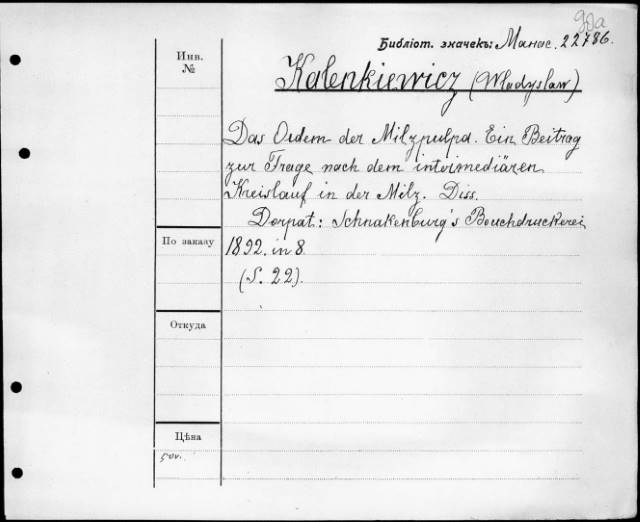 дда
Библіот. значекъ: Манас. 22786.
Инв. №
Kalenkiewicz (Władysław)
Das Oedem der Milzpulpa. Ein Beitrag
zur Frage nach dem intermediären
Kreislauf in der Milz. Diss.
Dorpat: Schnakenburg's Bouchdruckerei
По заказу
1892. in 8
(S. 22).
Откуда
Цѣна